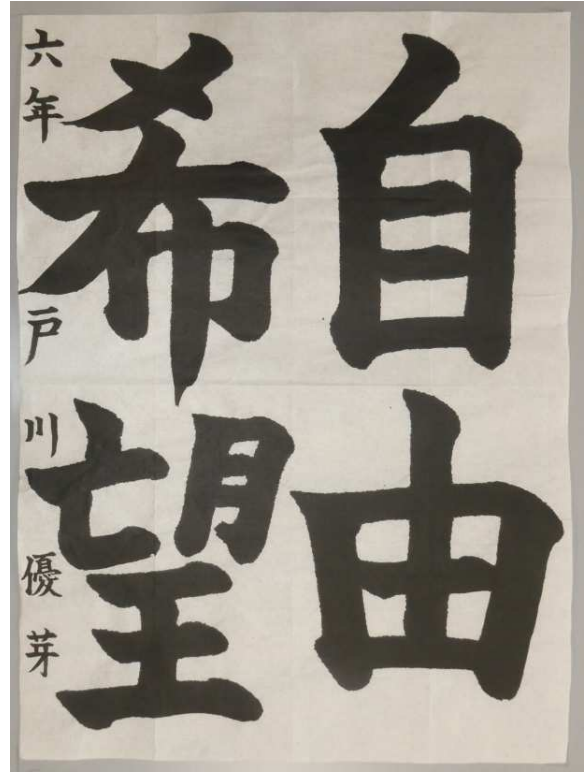 自由
希望
六年 戸川 優芽